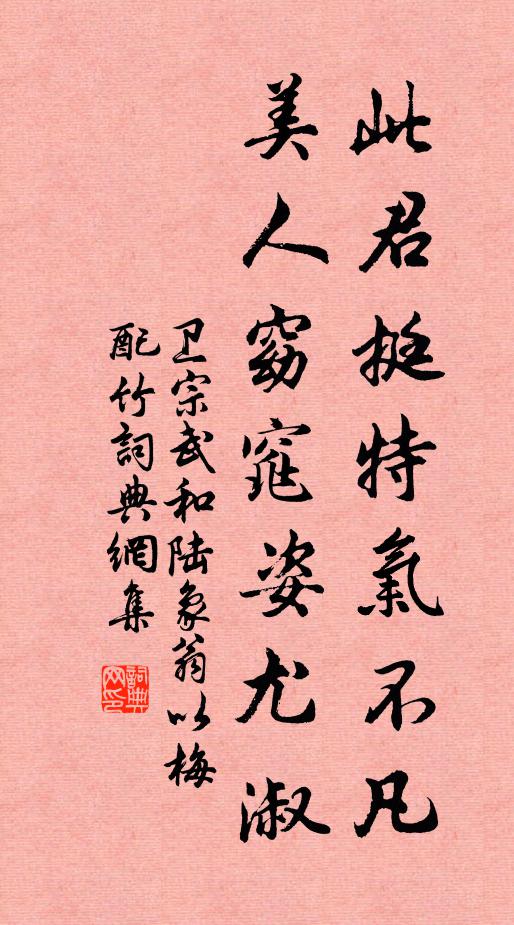 此君挺特氣不凡
美人窈窕姿尤淑
卫宗武和陆象翁以梅
配竹詞典網集
詞典
网印